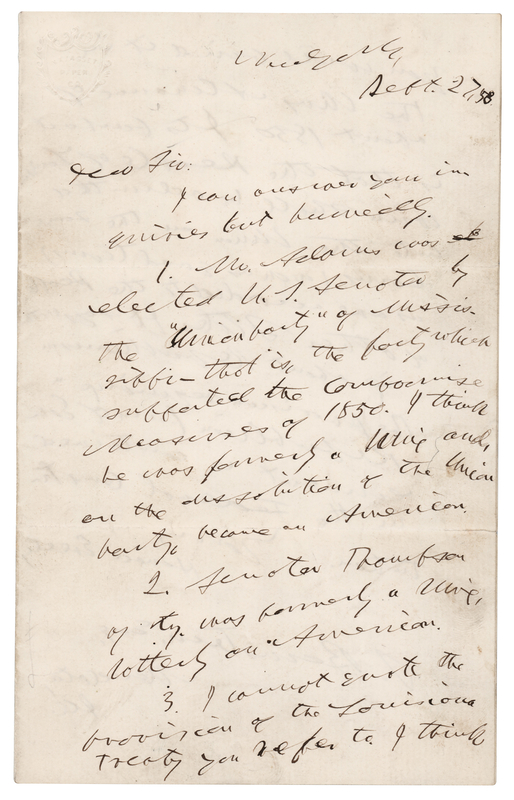 Sept. 27, 58.
Dear Sir:
I can answer your in-
quiries but hurriedly.
1. Mr. Adams was
elected U.S. Senator by
the "Union party" of Missis-
sippi – that is, the party which
supported the Compromise
Measures of 1850. I think
he was formerly a Whig and,
on the dissolution of the Union
party, became an American.
2. Senator Thompson
of Ky. was formerly a Whig,
latterly an American.
3. I cannot quote the
provision of the Louisiana
Treaty you refer to. I think